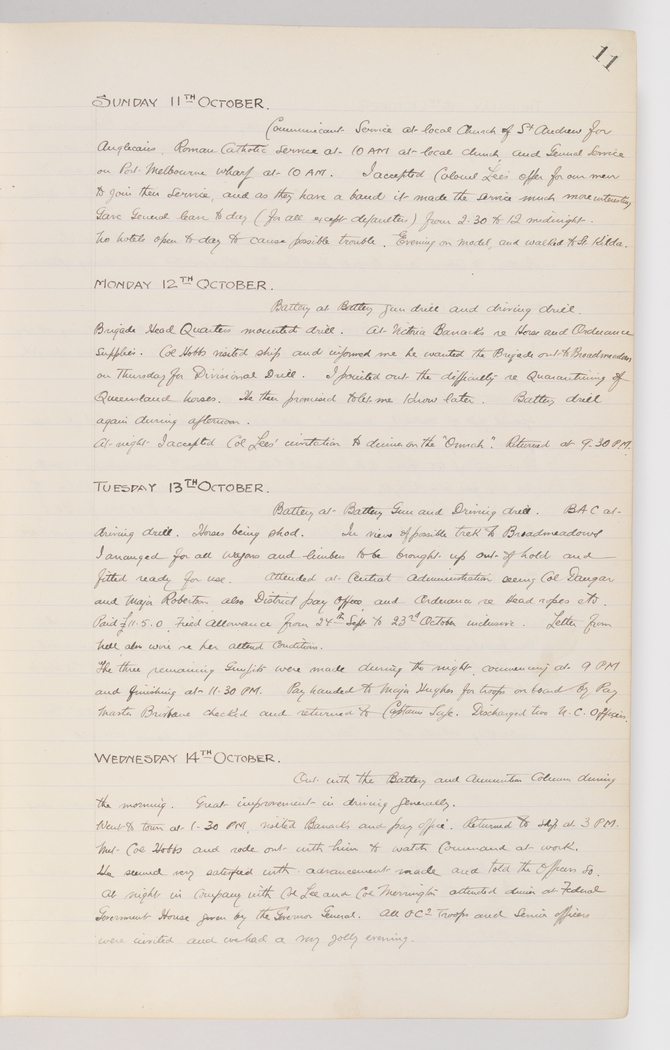 11
SUNDAY 11TH OCTOBER.
Communicant Service at local Church of St Andrew for
Anglicans. Roman Catholic Service at 10 AM at local church, and General Service
on Port Melbourne wharf at 10 AM. I accepted Colonel Lee's offer for our men
to join their service, and as they have a band it made the service much more interesting
Gave General leave to day (for all except defaulters) from 2.30 to 12 midnight.
No hotels open to day to cause possible trouble. Evening on model, and walked to St. Kilda.
MONDAY 12TH OCTOBER.
Battery at Battery gun drill and driving drill.
Brigade Head Quarters mounted drill. At Victoria Barracks re Horse and Ordnance
Supplies. Col Hobbs visited ship and informed me he wanted the Brigade out to Broadmeadows
on Thursday for Divisional Drill. I pointed out the difficulty re Quarantining of
Queensland horses. He then promised to let me know later. Battery drill
again during afternoon.
At night I accepted Col Lees' invitation to dinner on the "Omrah". Returned at 9.30 PM.
TUESDAY 13TH OCTOBER.
Battery at Battery Gun and Driving drill. BAC at
driving drill. Horses being shod. In view of possible trek to Broadmeadows
I arranged for all wagons and limbers to be brought up out of hold and
fitted ready for use. Attended at Central Administration seeing Col Dangar
and Major Robertson also District pay office, and Ordnance re Head ropes etc.
Paid £11.5.0 Field Allowance from 24th Sept to 23rd October inclusive. Letter from
Nell also wire re her condition.
The three remaining Gunpits were made during the night, commencing at 9 PM
and finishing at 11.30 PM. Pay handed to Major Hughes for troops on board by Pay
Master Brisbane checked and returned to Captains Safe. Discharged two N.C. Officers.
WEDNESDAY 14TH OCTOBER.
Out with the Battery and Ammunition Column during
the morning. Great improvement in driving generally.
Went to town at 1-30 PM, visited Barracks and pay office. Returned to ship at 3 PM.
Met Col Hobbs and rode out with him to watch Command at work.
He seemed very satisfied with advancement made and told the Officers so.
At night in Company with Col Lee and Col attended dinner at Federal
Government House given by the Governor General. All OCs Troops and Senior officers
were invited and we had a very jolly evening.